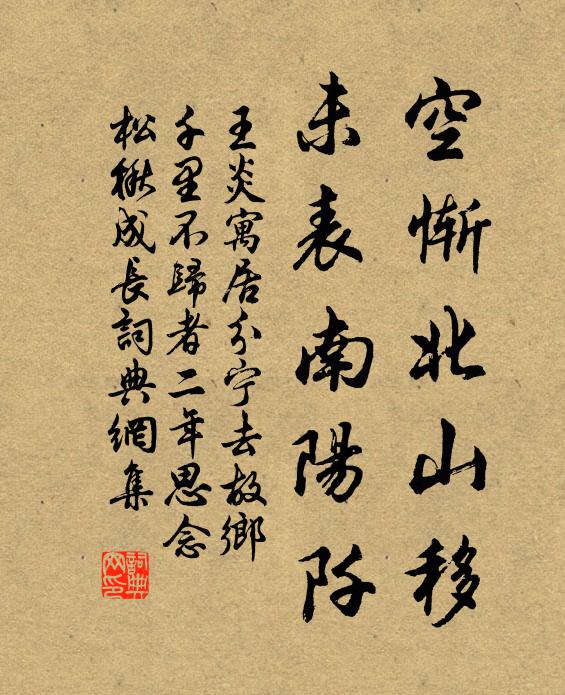 空慚北山移
未表南陽阡
王炎寓居分宁去故鄉
千里不歸者二年思念
松楸成長詞典網集
詞典
网印